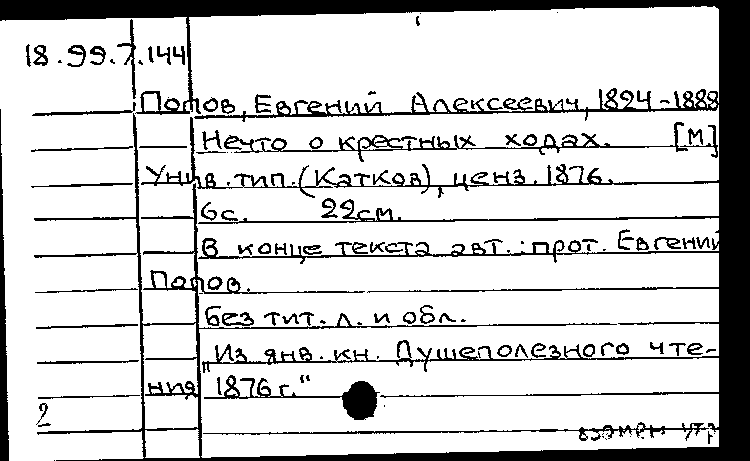 18.99.7.144
Попов, Евгений Алексеевич, 1824-1888
Нечто о крестных ходах. [М.]
Унив. тип. (Катков), ценз. 1876.
6с. 22см.
В конце текста авт.: прот. Евгений
Попов.
Без тит. л. и обл.
„Из янв. кн. Душеполезного чте-
ния 1876 г."
2
взамен утр